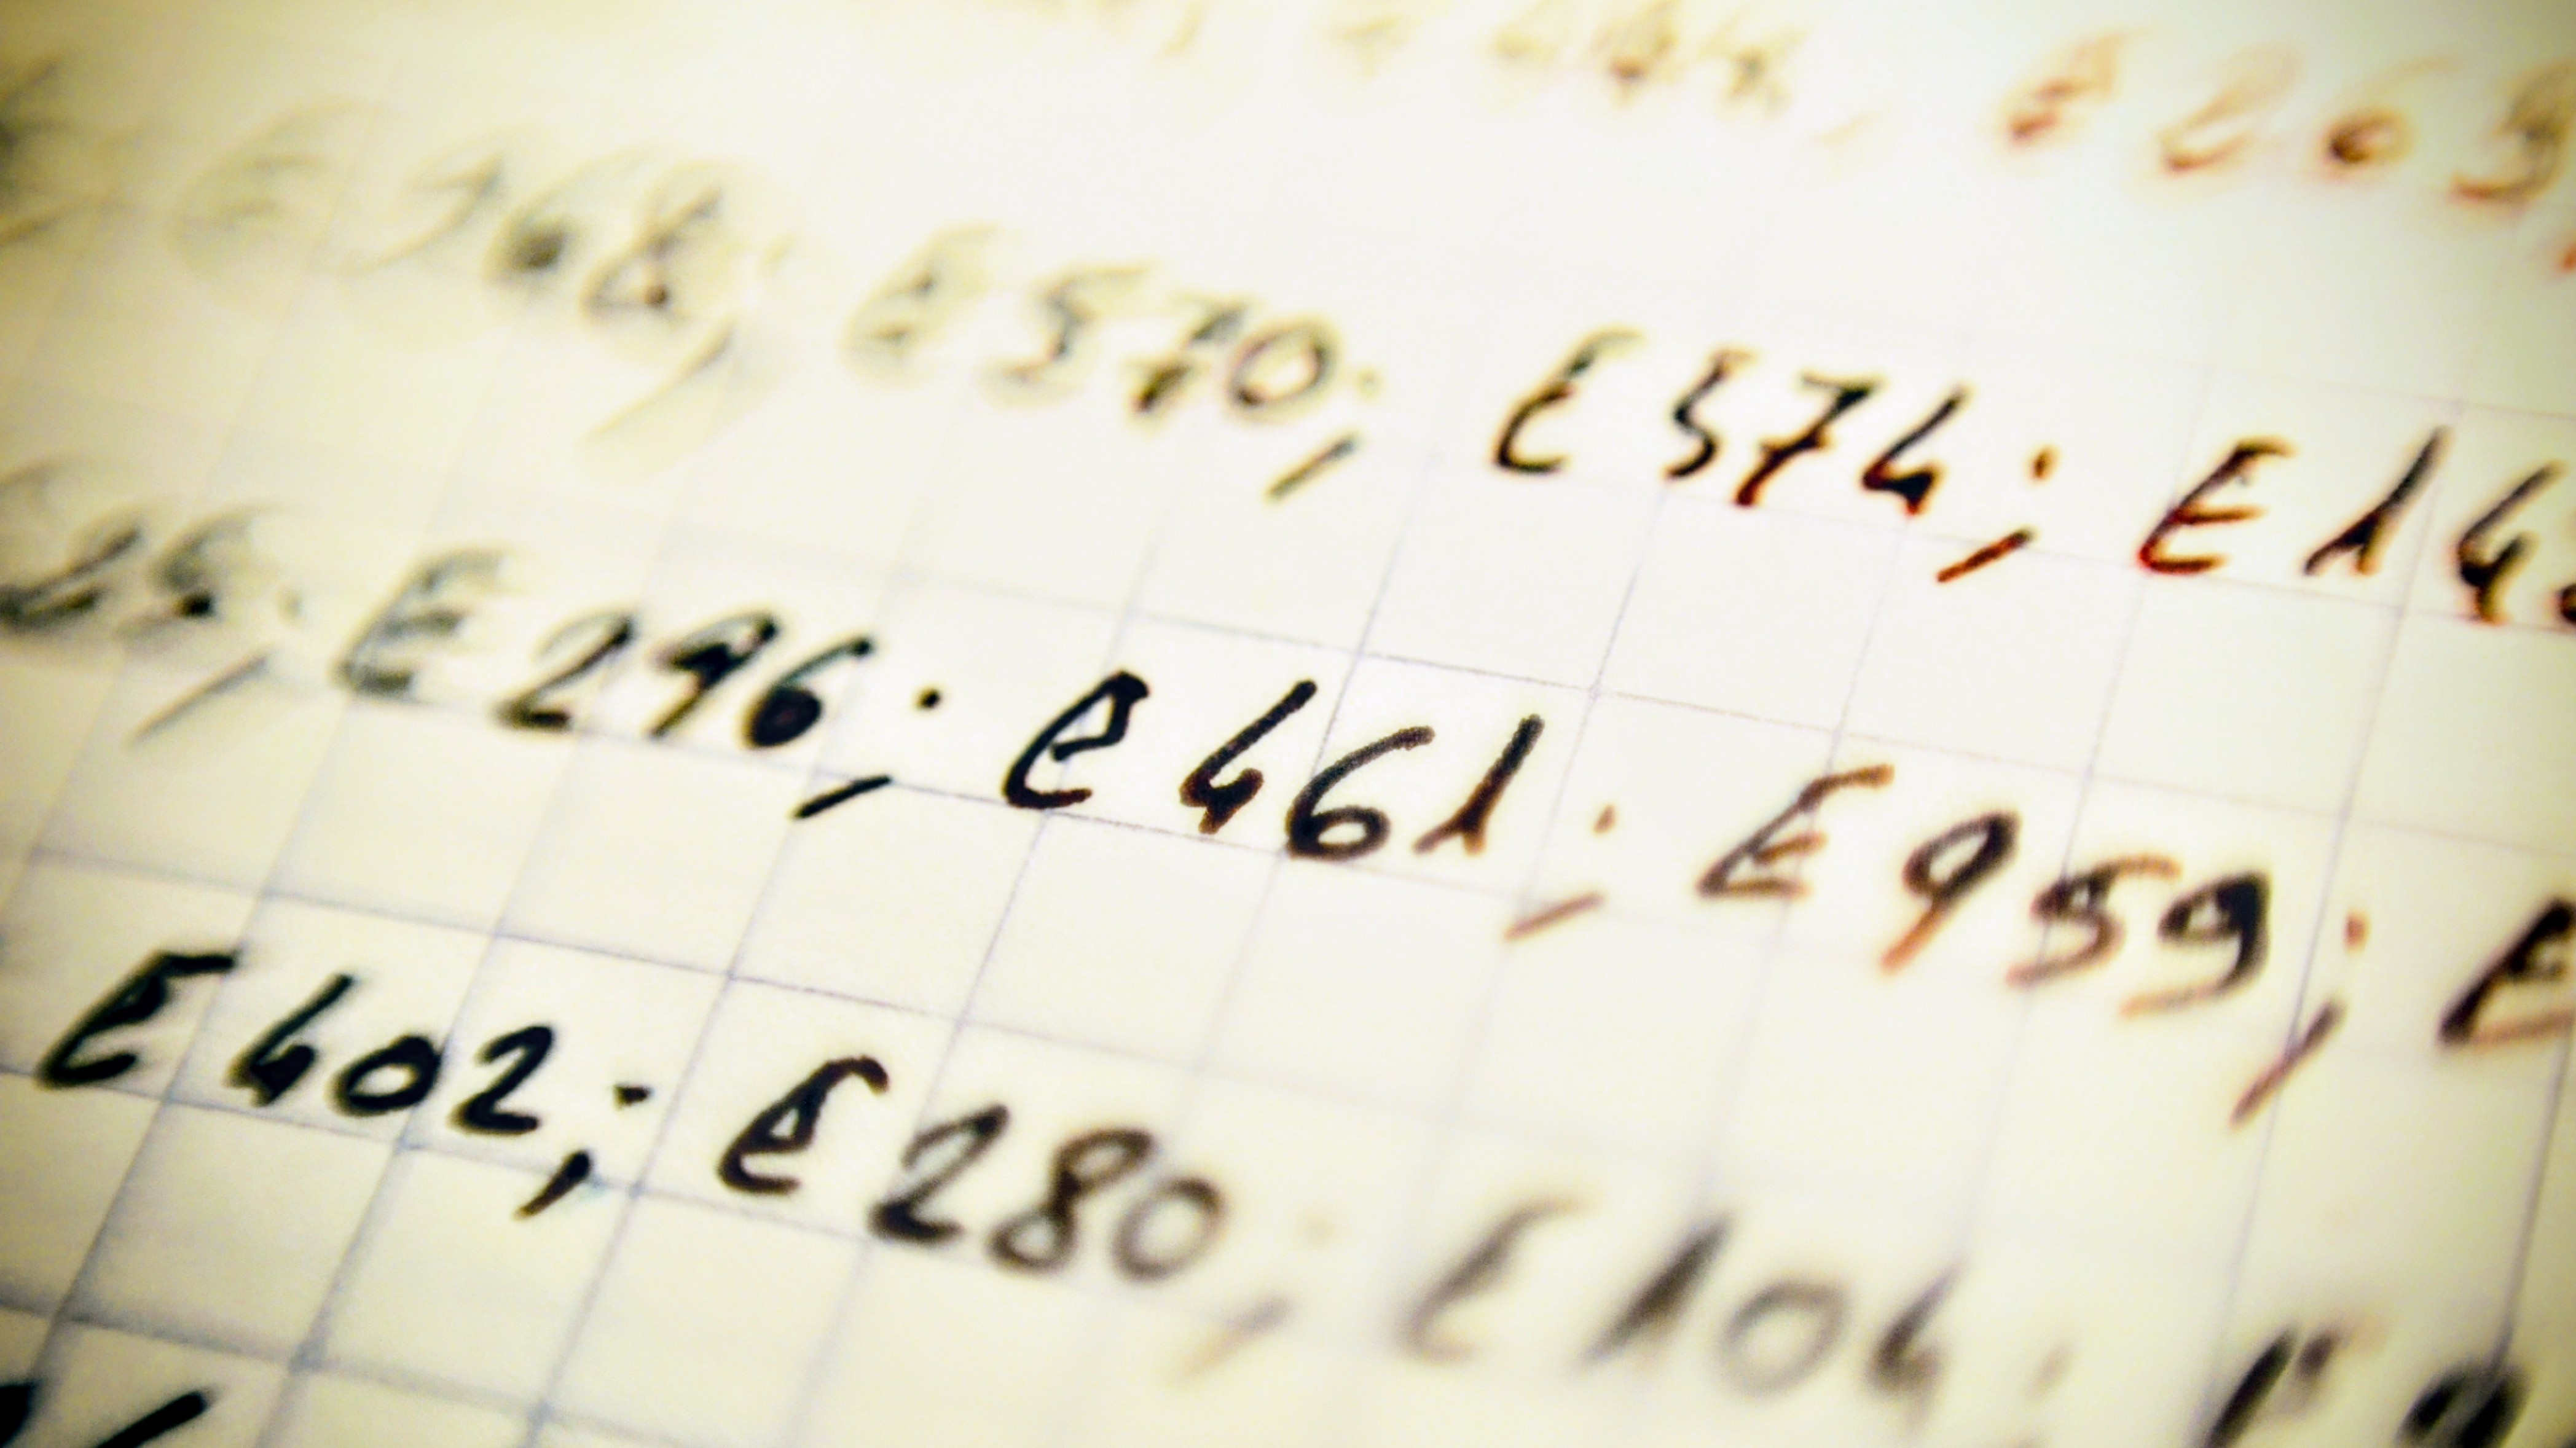 E269
E968; E570; E574; E14
E296; E461; E959; E
E402; E280; E104;